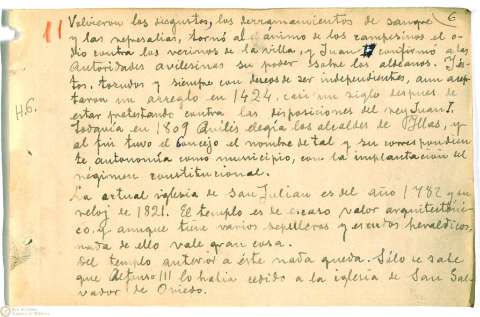 11
6
Volvieron los disgustos, los derramamientos de sangre
y las represalias, tornó al ánimo de los campesinos el o-
dio contra los vecinos de la villa, y Juan II confirmó a las
Autoridades avilesinas su poder sobre los aldeanos. Es-
tos, tozudos y siempre con deseos de ser independientes, aun acep-
taron un arreglo en 1424, casi un siglo despues de
estar protestando contra las disposiciones del rey Juan I,
todavía en 1809 Avilés elegía los alcaldes de Illas, y
al fin tuvo el Concejo el nombre de tal y su correspondien
te autonomía como municipio, con la implantación del
régimen constitucional.
H.6.
La actual iglesia de San Julian es del año 1782 y su
reloj de 1821. El templo es de escaso valor arquitectóni-
co, y aunque tiene varios sepulcros y escudos heraldicos,
nada de ello vale gran cosa.
Del templo anterior a éste nada queda. Sólo se sabe
que Alfonso III lo había cedido a la iglesia de San Sal-
vador de Oviedo.